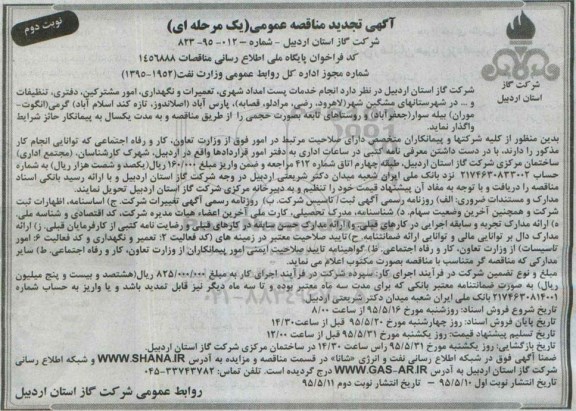 نوبت دوم
آگهی تجدید مناقصه عمومی(یک مرحله ای)
شرکت گاز استان اردبیل - شماره ۰۱۲-۹۵-۸۲۳
کد فراخوان پایگاه ملی اطلاع رسانی مناقصات ۱۴۵۶۸۸۸
شماره مجوز اداره کل روابط عمومی وزارت نفت(۱۹۵۲-۱۳۹۵)
شرکت گاز
استان اردبیل
شرکت گاز استان اردبیل در نظر دارد انجام خدمات پست امداد شهری، تعمیرات و نگهداری، امور مشترکین، دفتری، تنظیفات
و ... در شهرستانهای مشگین شهر(لاهرود، رضی، مرادلو، قصابه)، پارس آباد (اصلاندوز، تازه کند اسلام آباد) گرمی(انگوت-
موران) بیله سوار(جعفرآباد) و روستاهای تابعه بصورت حجمی را از طریق مناقصه و به مدت یکسال به پیمانکار حائز شرایط
واگذار نماید.
بدین منظور از کلیه شرکتها و پیمانکاران متخصص دارای صلاحیت مرتبط در امور فوق از وزارت تعاون، کار و رفاه اجتماعی که توانایی انجام کار
مذکور را دارند، با در دست داشتن معرفی نامه کتبی در ساعات اداری به دفتر امور قراردادها واقع در اردبیل، شهرک کارشناسان، (مجتمع اداری)
ساختمان مرکزی شرکت گاز استان اردبیل، طبقه چهارم اتاق شماره ۴۱۲ مراجعه و ضمن واریز مبلغ ۱۶۰/۰۰۰ ریال(یکصد و شصت هزار ریال) به شماره
حساب ۲۱۷۴۶۳۰۸۳۳۰۰۲ نزد بانک ملی ایران شعبه میدان دکتر شریعتی اردبیل در وجه شرکت گاز استان اردبیل و با ارائه رسید بانکی اسناد
مناقصه را دریافت و با توجه به مفاد آن پیشنهاد قیمت خود را تنظیم و به دبیرخانه مرکزی شرکت گاز استان اردبیل تحویل نمایند.
مدارک و مستندات ضروری: الف) روزنامه رسمی آگهی ثبت/ تاسیس شرکت. ب) روزنامه رسمی آگهی تغییرات شرکت. ج) اساسنامه، اظهارات ثبت
شرکت و همچنین آخرین وضعیت سهام. د) شناسنامه، مدرک تحصیلی، کارت ملی آخرین اعضاء هیات مدیره شرکت، کد اقتصادی و شناسه ملی.
ه) ارائه مدارک تجربه و سابقه اجرایی در کارهای قبلی. و) ارائه مدارک حسن سابقه در کارهای قبلی و رضایت نامه کتبی از کارفرمایان قبلی. ز) ارائه
مدارک دال بر توانایی مالی و توانایی ارائه ضمانتنامه. ح) تایید صلاحیت معتبر در زمینه های (کد فعالیت ۲: تعمیر و نگهداری و کد فعالیت ۶: امور
تاسیسات) از وزارت تعاون، کار و رفاه اجتماعی. ط) گواهینامه تایید صلاحیت ایمنی امور پیمانکاران از وزارت تعاون، کار و رفاه اجتماعی. ط) سایر
مدارکی که مناقصه گر متناسب با مناقصه بصورت مکتوب اعلام می نماید.
مبلغ و نوع تضمین شرکت در فرآیند اجرای کار: سپرده شرکت در فرآیند اجرای کار به مبلغ ۸۲۵/۰۰۰/۰۰۰ ریال(هشتصد و بیست و پنج میلیون
ریال) به صورت ضمانتنامه معتبر بانکی که برای مدت سه ماه معتبر بوده و تا سه ماه دیگر نیز قابل تمدید باشد و یا واریز به حساب شماره
۲۱۷۴۶۳۰۸۱۴۰۰۱ بانک ملی ایران شعبه میدان دکتر شریعتی اردبیل.
تاریخ شروع فروش اسناد: روزشنبه مورخ ۹۵/۵/۱۶ از ساعت ۸/۰۰
تاریخ پایان فروش اسناد: روز چهارشنبه مورخ ۹۵/۵/۲۰ تا آخر ساعت ۱۴/۳۰
تاریخ تسلیم پیشنهاد قیمت: روز یکشنبه مورخ ۹۵/۵/۳۱ تا پایان وقت ساعت ۱۲/۰۰
تاریخ بازگشایی: روز یکشنبه مورخ ۹۵/۵/۳۱ راس ساعت ۱۴/۳۰ در ساختمان مرکزی شرکت گاز استان اردبیل.
ضمنا آگهی فوق در شبکه اطلاع رسانی نفت و انرژی «شانا» در قسمت مناقصه و مزایده به آدرس WWW.SHANA.IR و شبکه اطلاع رسانی
شرکت گاز استان اردبیل به آدرس WWW.GAS-AR.IR درج گردیده است. تلفن تماس: ۳۳۷۴۳۷۸۲-۰۴۵
تاریخ انتشار نوبت اول ۹۵/۵/۱۰ - تاریخ انتشار نوبت دوم ۹۵/۵/۱۱
روابط عمومی شرکت گاز استان اردبیل